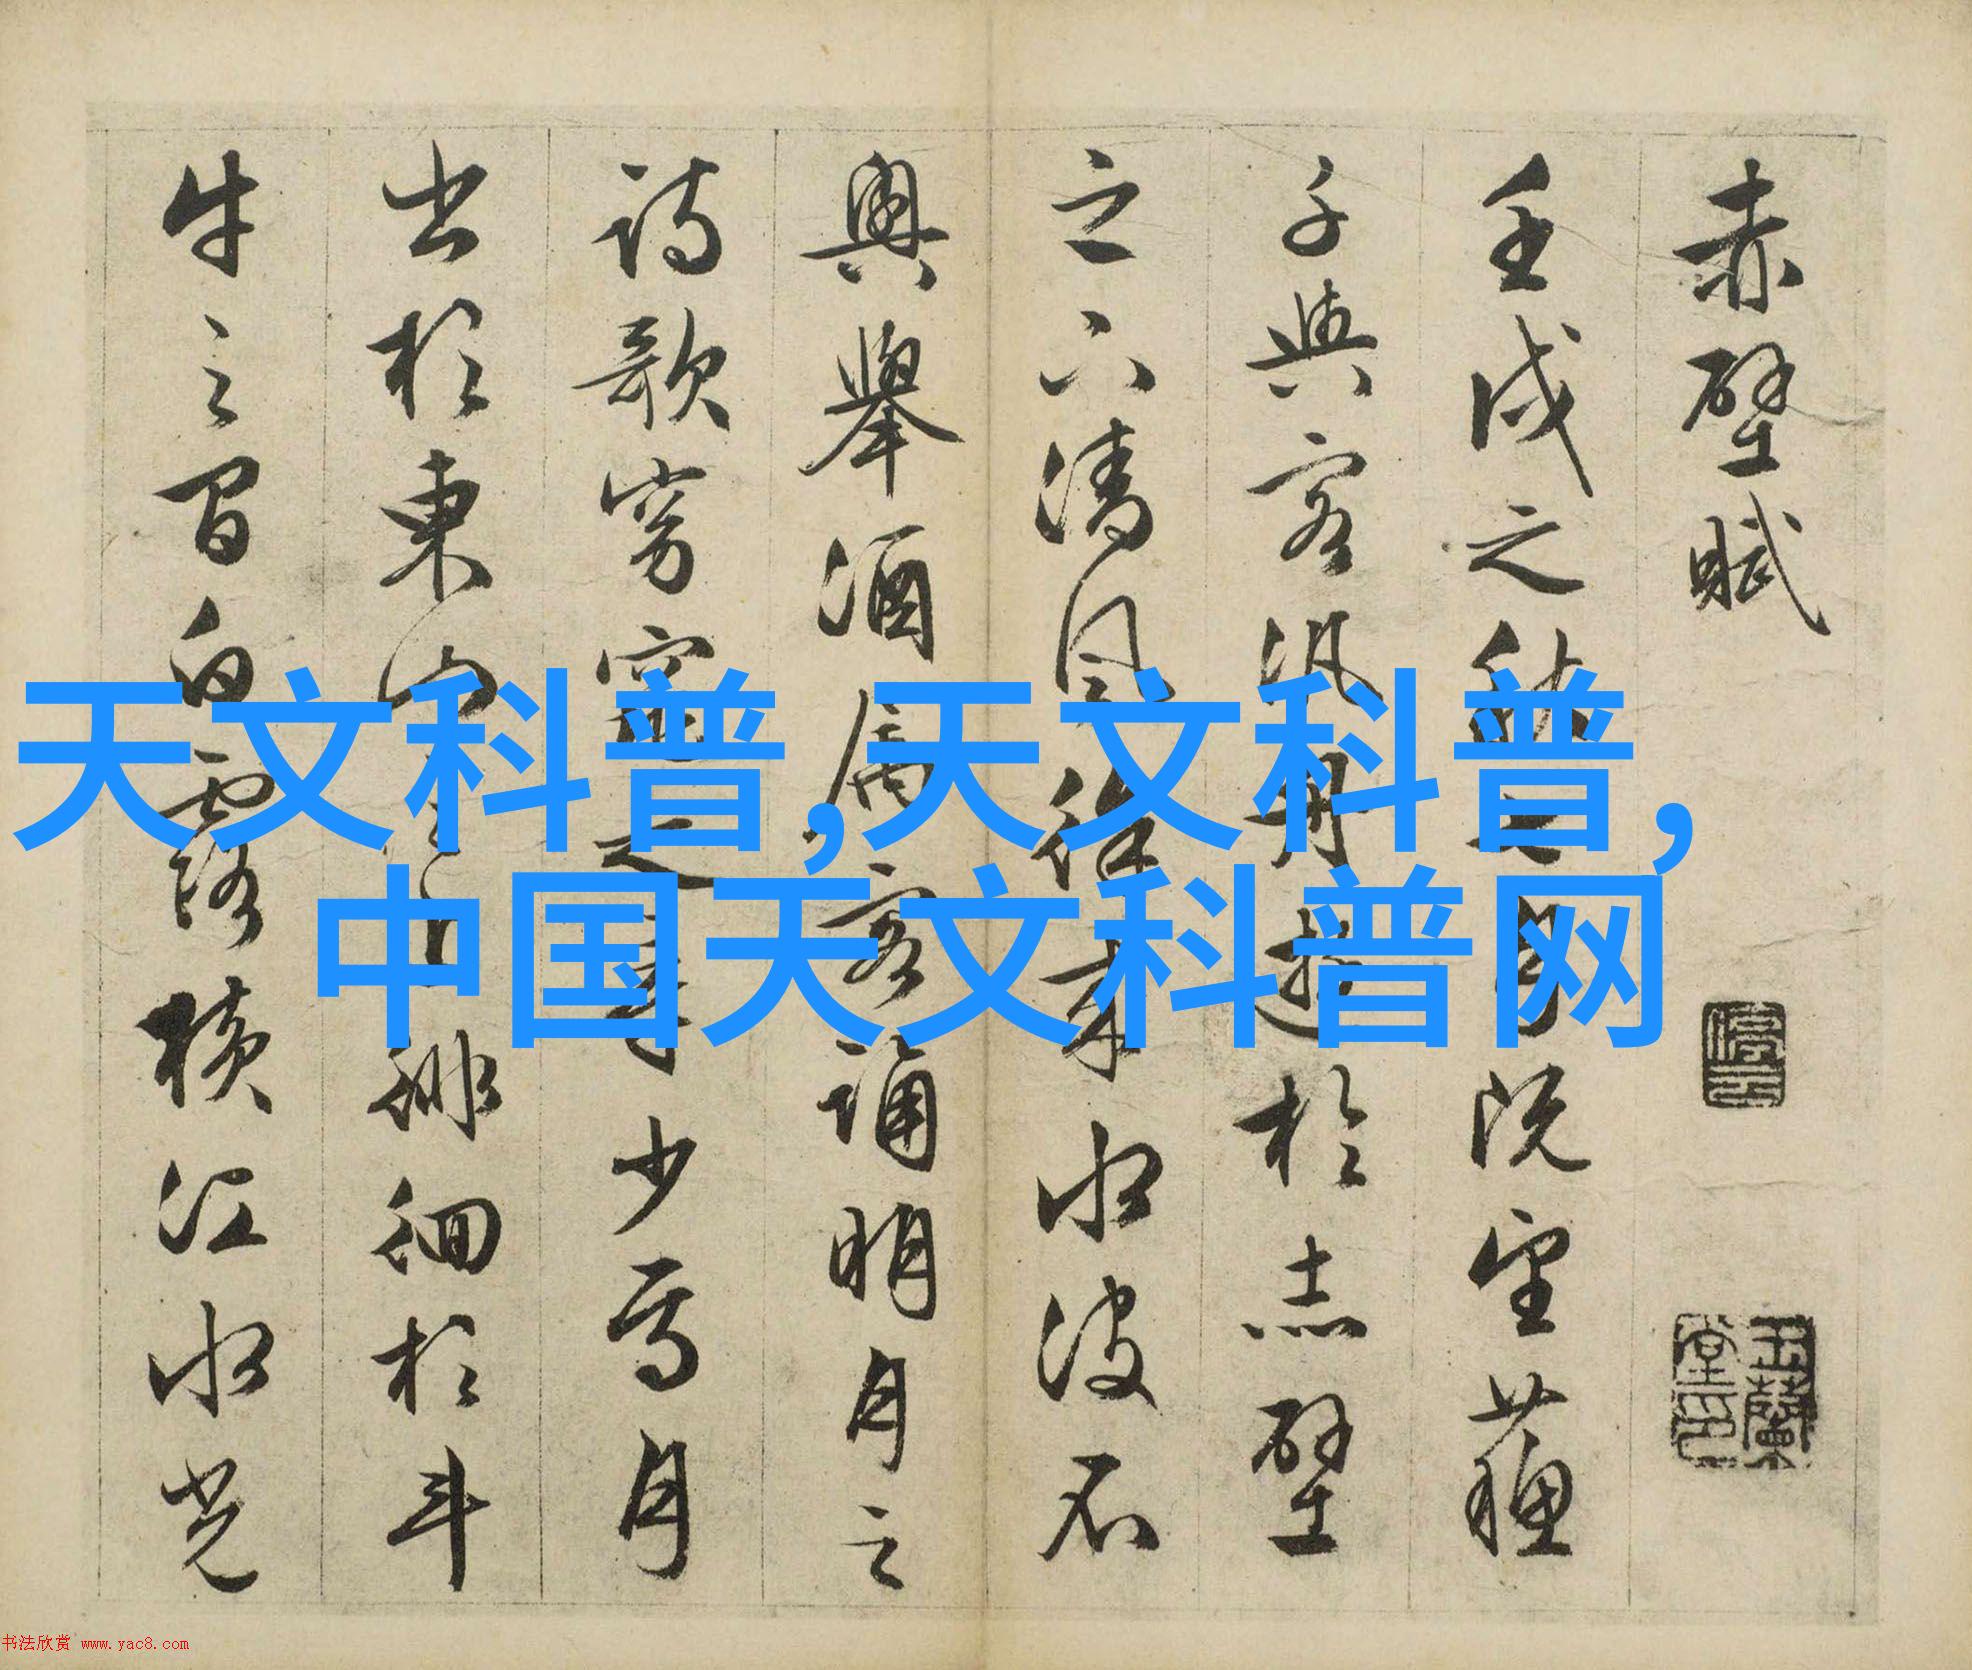 赤壁賦
壬戌之秋七月既望蘇
子與客汎舟遊於赤壁
之下清風徐來水波不
興舉酒屬客誦明月之
詩歌窈窕之章少焉月
出於東山之上徘徊於斗
牛之間白露橫江水光
停云
玉蘭堂印
天文科普,天文科普,
中国天文科普网
书法欣赏 www.yac8.com